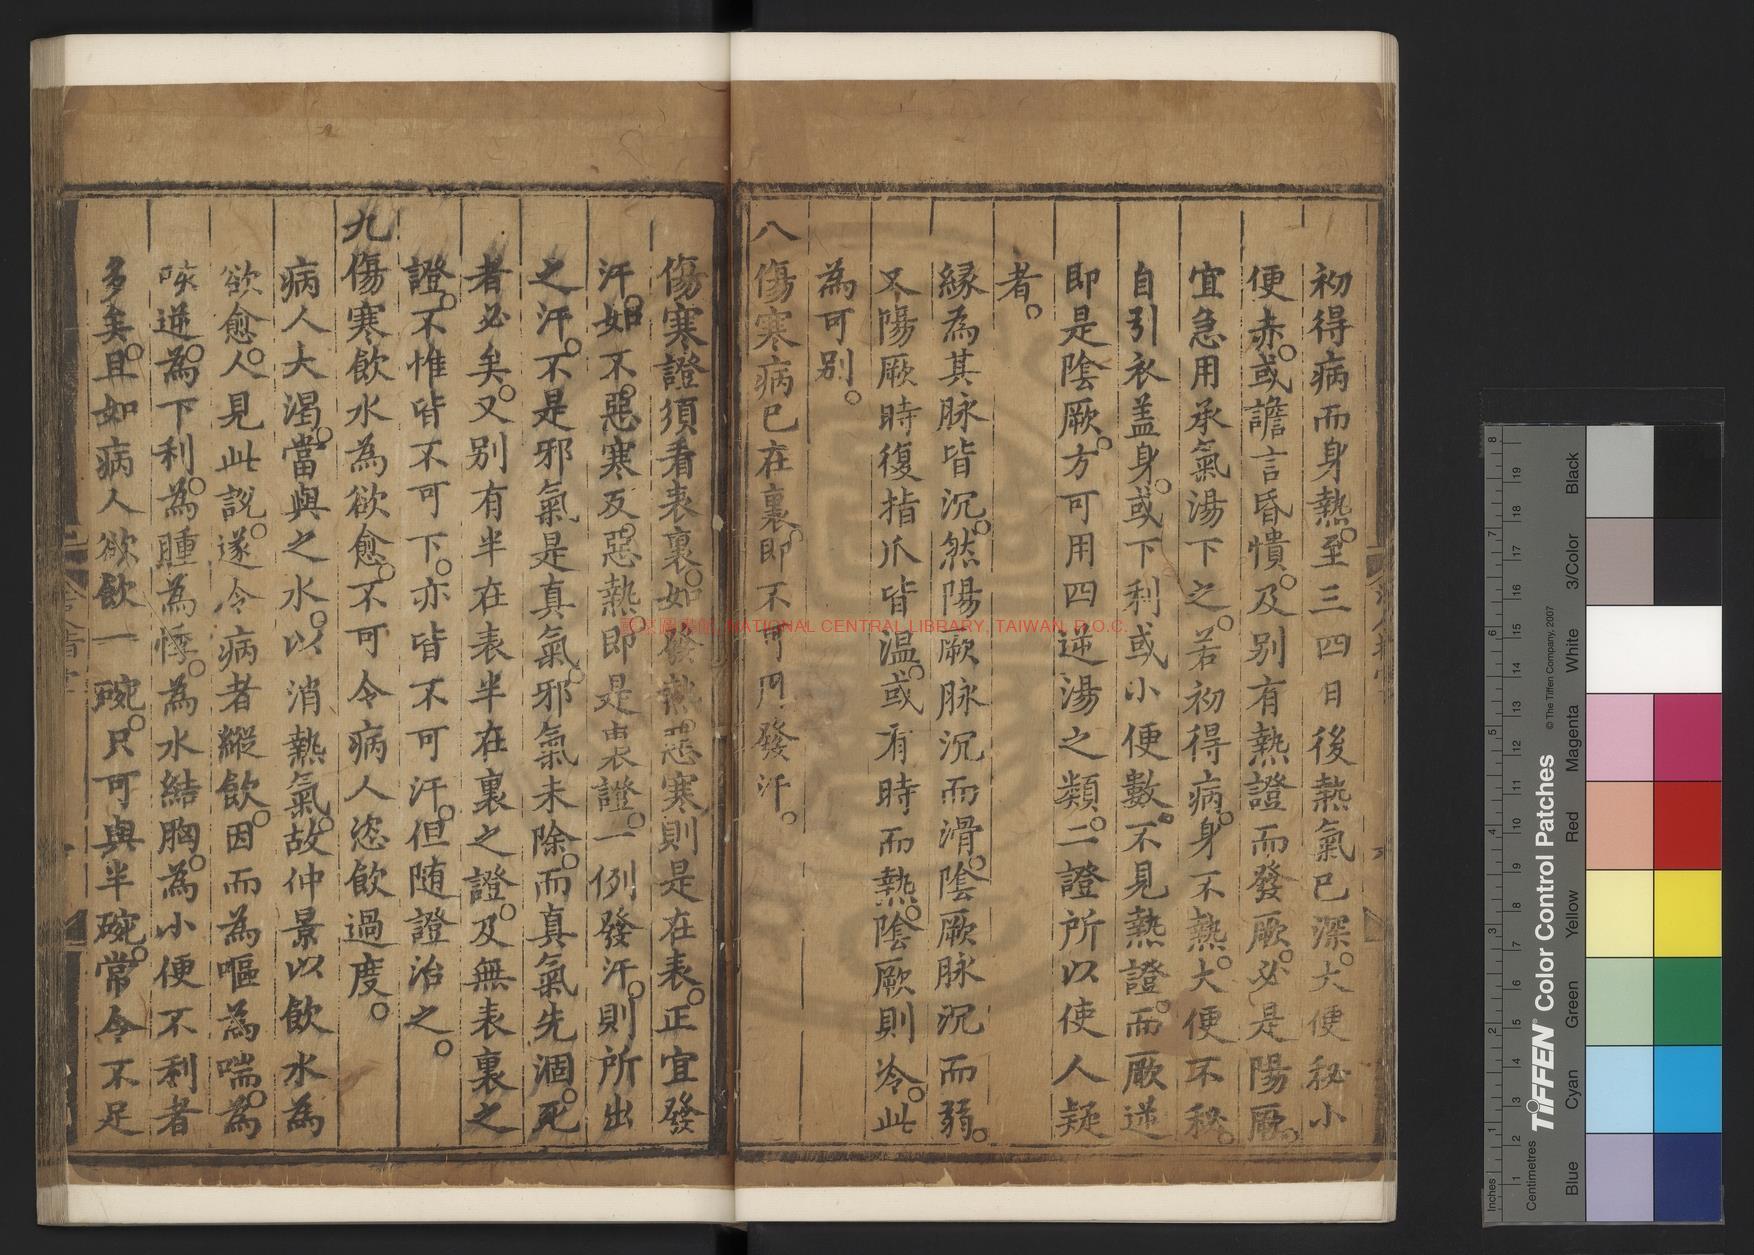 初得病而身熱。至三四日後熱氣已深。大便秘小
便赤。或譫言昏憒。及别有熱證而發厥。必是陽厥。
宜急用承氣湯下之。若初得病。身不熱。大便不秘。
自引衣盖身。或下利或小便數。不見熱證。而厥逆
即是陰厥。方可用四逆湯之類。二證所以使人疑
者。
縁為其脉皆沉。然陽厥脉沉而滑。陰厥脉沉而弱。
又陽厥時復指爪皆温。或有時而熱。陰厥則冷。此
為可别。
八傷寒病已在裏。即不可用發汗。
傷寒證須看表裏。如發熱。惡寒則是在表。正宜發
汗。如不。惡寒反。惡熱即是裏證。一例發汗。則所出
之汗。不是邪氣是真氣。邪氣未除。而真氣先涸。死
者必矣。又别有半在表半在裏之證。及無表裏之
證。不惟皆不可下。亦皆不可汗。但随證治之。
九傷寒飲水為欲愈。不可令病人恣飲過度。
病人大渴。當與之水。以消熱氣。故仲景以飲水為
欲愈。人見此說。遂令病者縱飲。因而為嘔為喘。為
咳逆。為下利。為腫為悸。為水結胸。為小便不利者
多矣。且如病人欲飲一碗。只可與半碗。常令不足
國家圖書館, NATIONAL CENTRAL LIBRARY, TAIWAN, R.O.C.
Inches
Centimetres
TIFFEN® Color Control Patches
© The Tiffen Company, 2007
Blue
Cyan
Green
Yellow
Red
Magenta
White
3/Color
Black